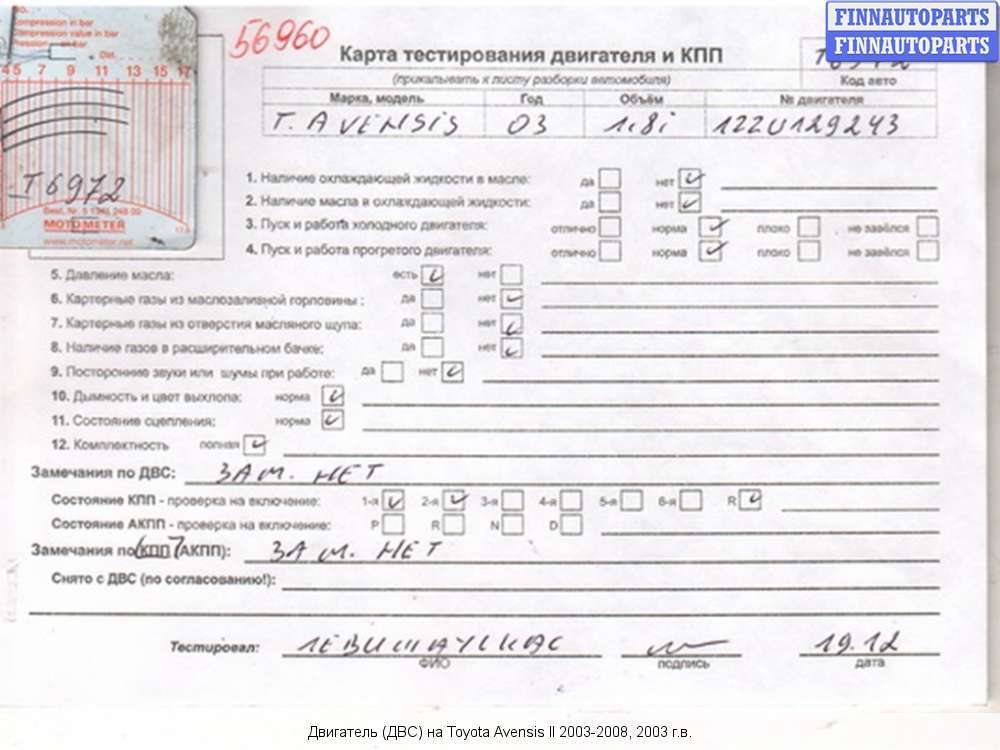 FINNAUTOPARTS
FINNAUTOPARTS
Compression in bar
Compression value in bar
Pression en bar
Dat.
4 5 7 9 11 13 15 17
T6972
Best. Nr.
MOTOMETER
www.motometer.net
56960
Карта тестирования двигателя и КПП
(прикалывать к листу разборки автомобиля)
T6972
Код авто
Марка, модель Год Объём № двигателя
T. AVENSIS 03 1.8i 1ZZU129243
1. Наличие охлаждающей жидкости в масле: да нет
2. Наличие масла в охлаждающей жидкости: да нет
3. Пуск и работа холодного двигателя: отлично норма плохо не завёлся
4. Пуск и работа прогретого двигателя: отлично норма плохо не завёлся
5. Давление масла: есть нет
6. Картерные газы из маслозаливной горловины : да нет
7. Картерные газы из отверстия масляного щупа: да нет
8. Наличие газов в расширительном бачке: да нет
9. Посторонние звуки или шумы при работе: да нет
10. Дымность и цвет выхлопа: норма
11. Состояние сцепления: норма
12. Комплектность полная
Замечания по ДВС: ЗАМ. НЕТ
Состояние КПП - проверка на включение: 1-я 2-я 3-я 4-я 5-я 6-я R
Состояние АКПП - проверка на включение: P R N D
Замечания по КПП (АКПП): ЗАМ. НЕТ
Снято с ДВС (по согласованию!):
Тестировал: 19.12
ФИО подпись дата
Двигатель (ДВС) на Toyota Avensis II 2003-2008, 2003 г.в.